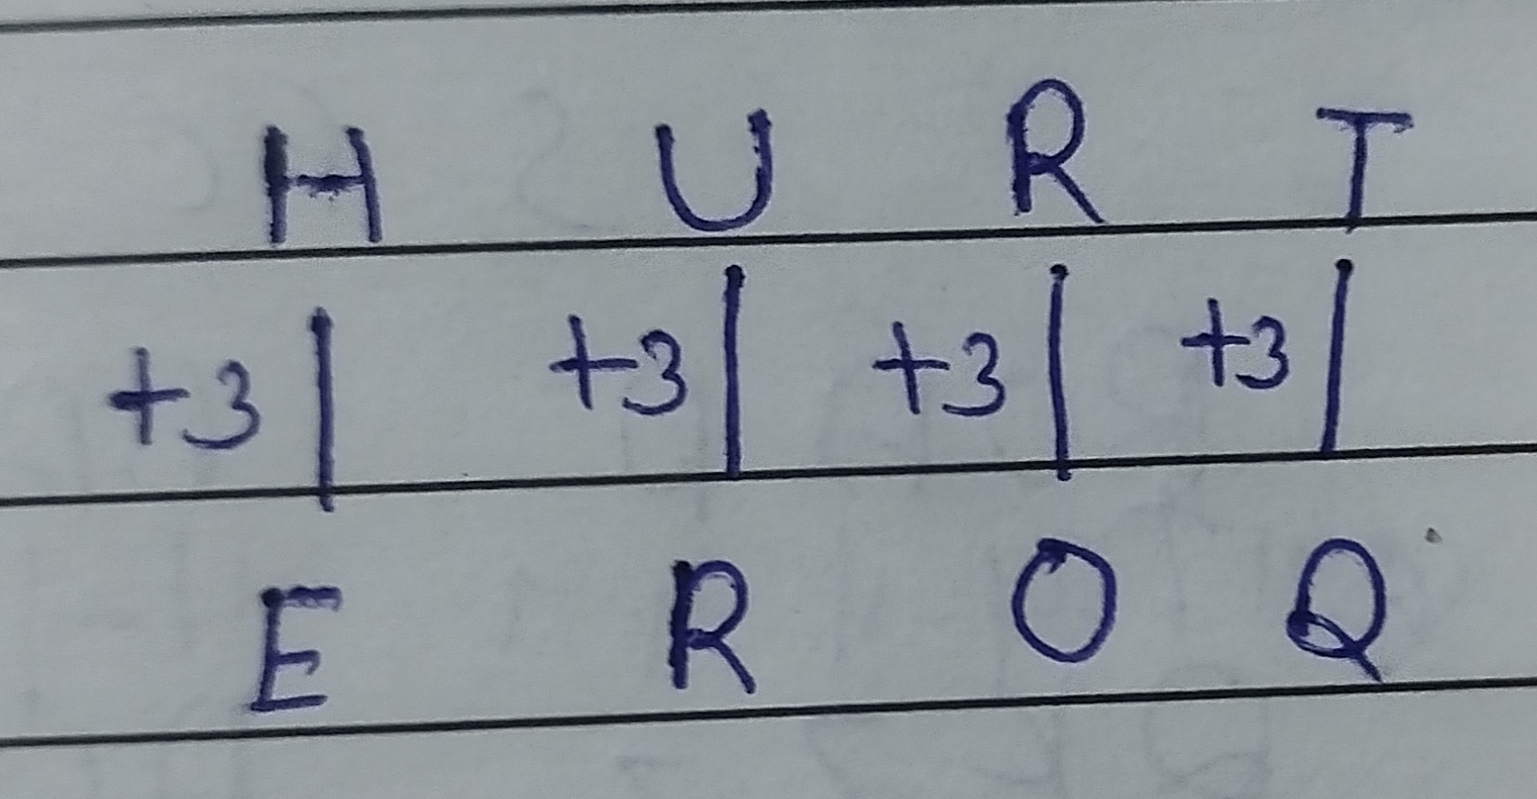 H U R T
+3| +3| +3| +3|
E R O Q